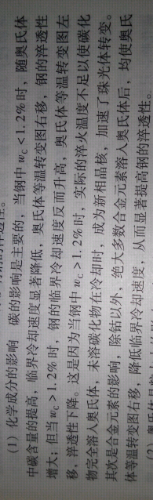 的淬透性。
(1) 化学成分的影响　碳的影响是主要的，当钢中 wC<1.2%时，随奥氏体
中碳含量的提高，临界冷却速度显著降低，奥氏体等温转变图右移，钢的淬透性
增大；但当 wC>1.2%时，钢的临界冷却速度反而升高，奥氏体等温转变图左
移，淬透性下降。这是因为当钢中 wC>1.2%时，实际的淬火温度不足以使碳化
物完全溶入奥氏体，未溶碳化物在冷却时，成为新相晶核，加速了珠光体转变。
其次是合金元素的影响，除钴以外，绝大多数合金元素溶入奥氏体后，均使奥氏
体等温转变图右移，降低临界冷却速度，从而显著提高钢的淬透性